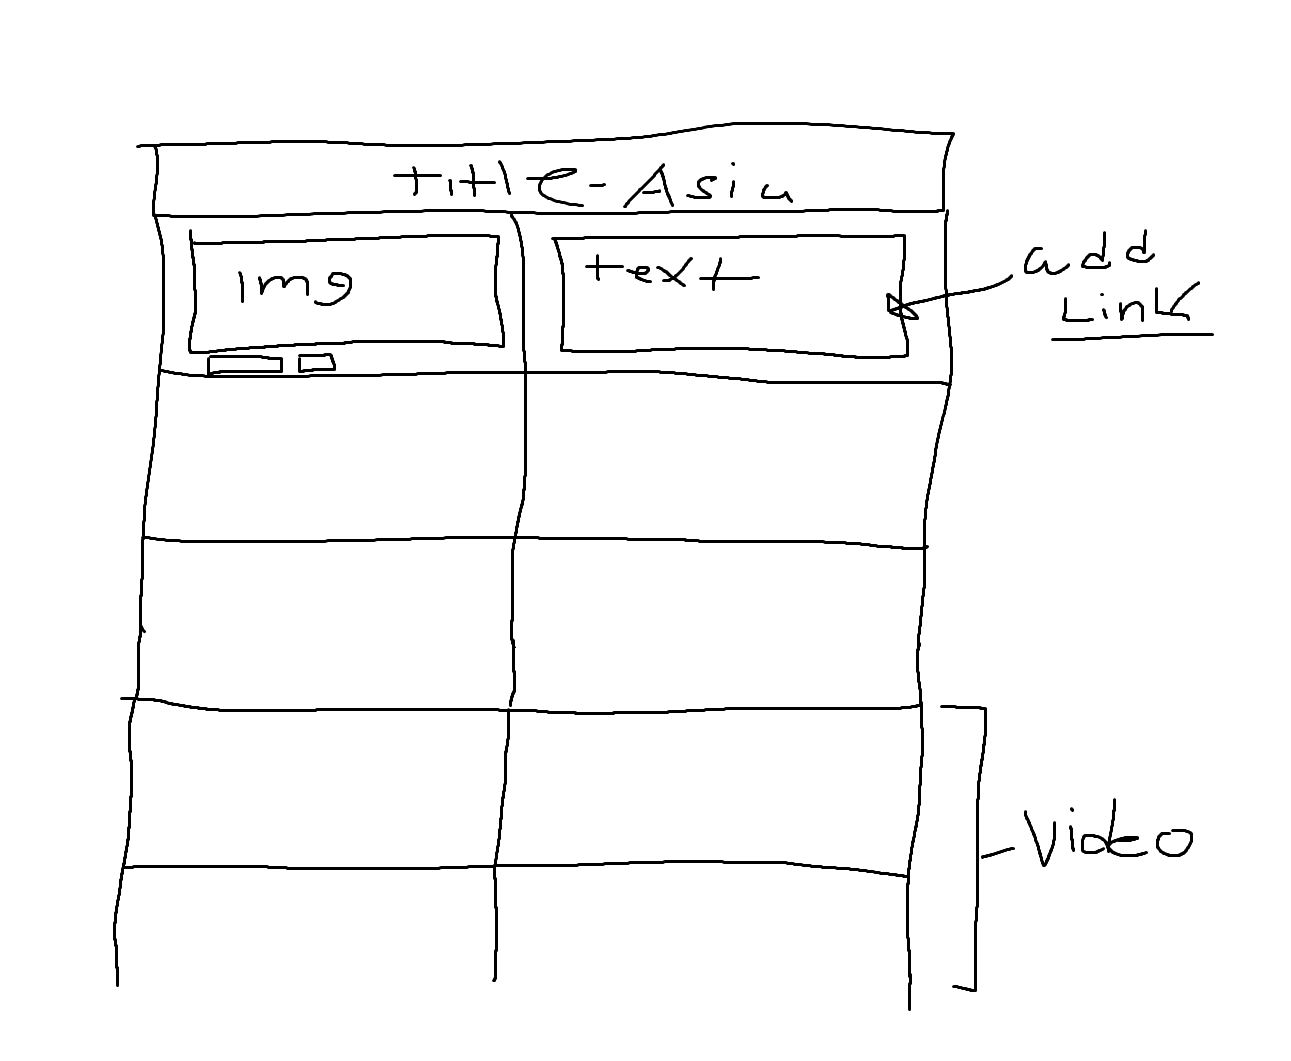 title-Asia
img
text
add
Link
Video